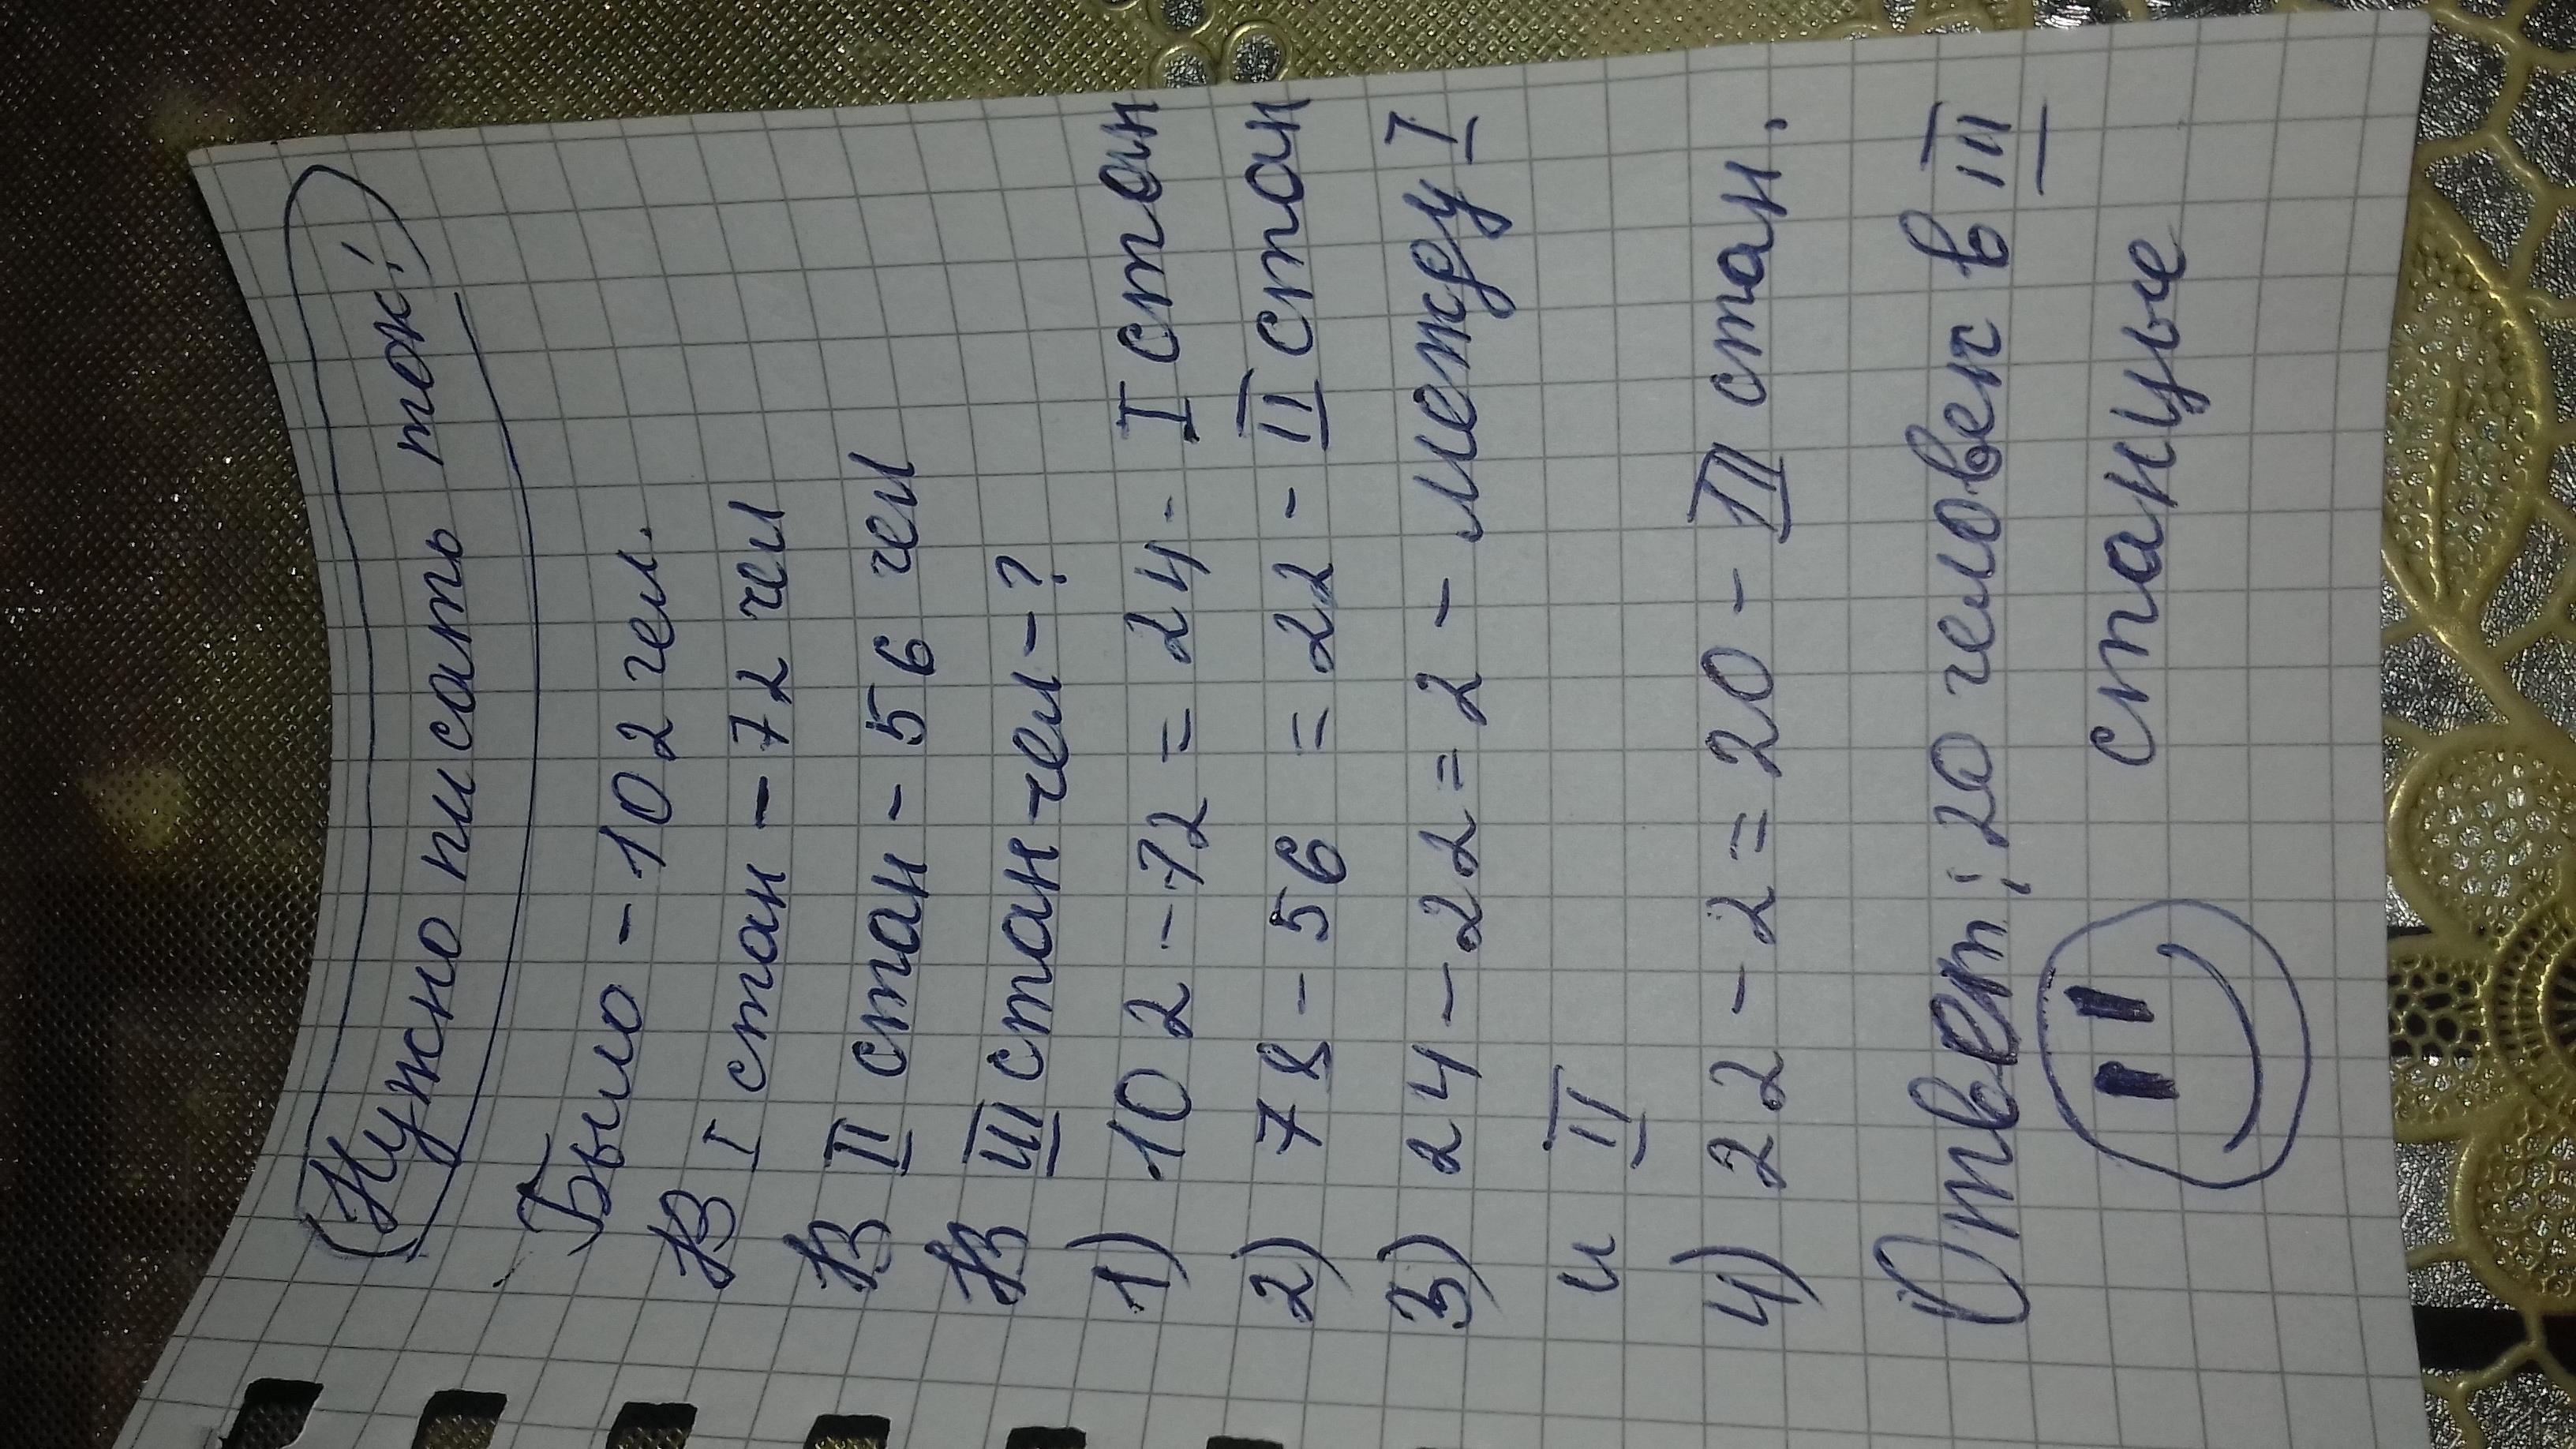 (Нужно писать так!)
Было - 102 чел.
В I стан - 72 чел
В II стан - 56 чел
В III стан-чел-?
1) 102-72=24- I стан
2) 78-56 =22- II стан
3) 24-22=2- между I
и II
4) 22-2=20- III стан.
Ответ; 20 человек в III
станцые